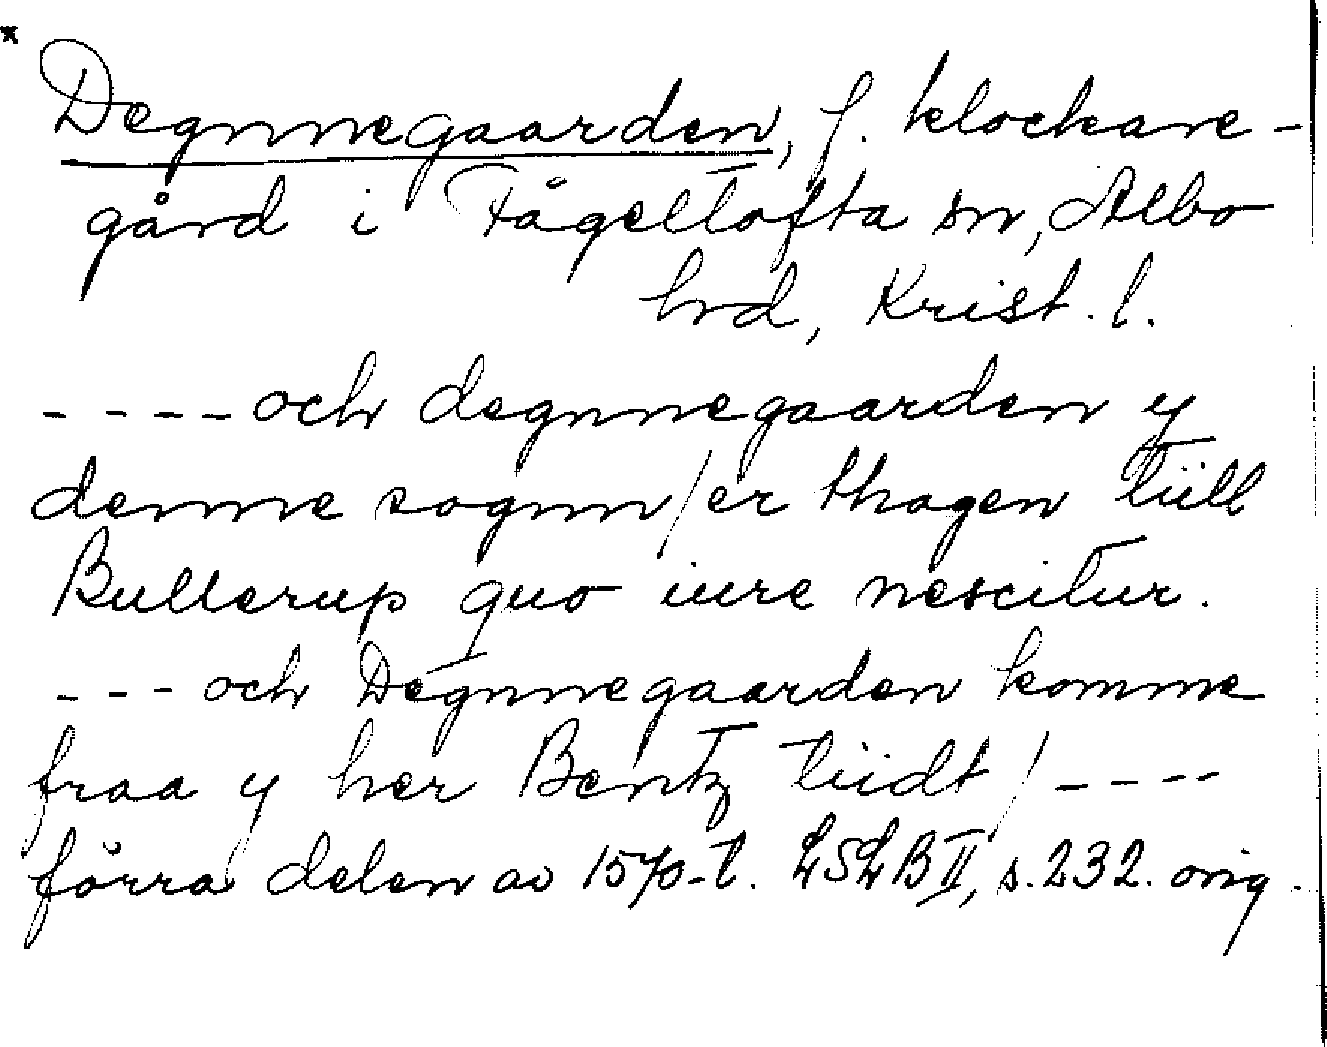 Degnnegaarden, f. klockare-
gård i Fågeltofta sn, Albo
hrd, Krist. l.
---- och degnnegaarden y
denne sognn / er thagen tiill
Bullerup quo iure nescitur.
--- och Degnnegaarden komme
fraa y her Bentz tiidt / ----
förra delen av 1570-t. LSLB II, s. 232. orig.